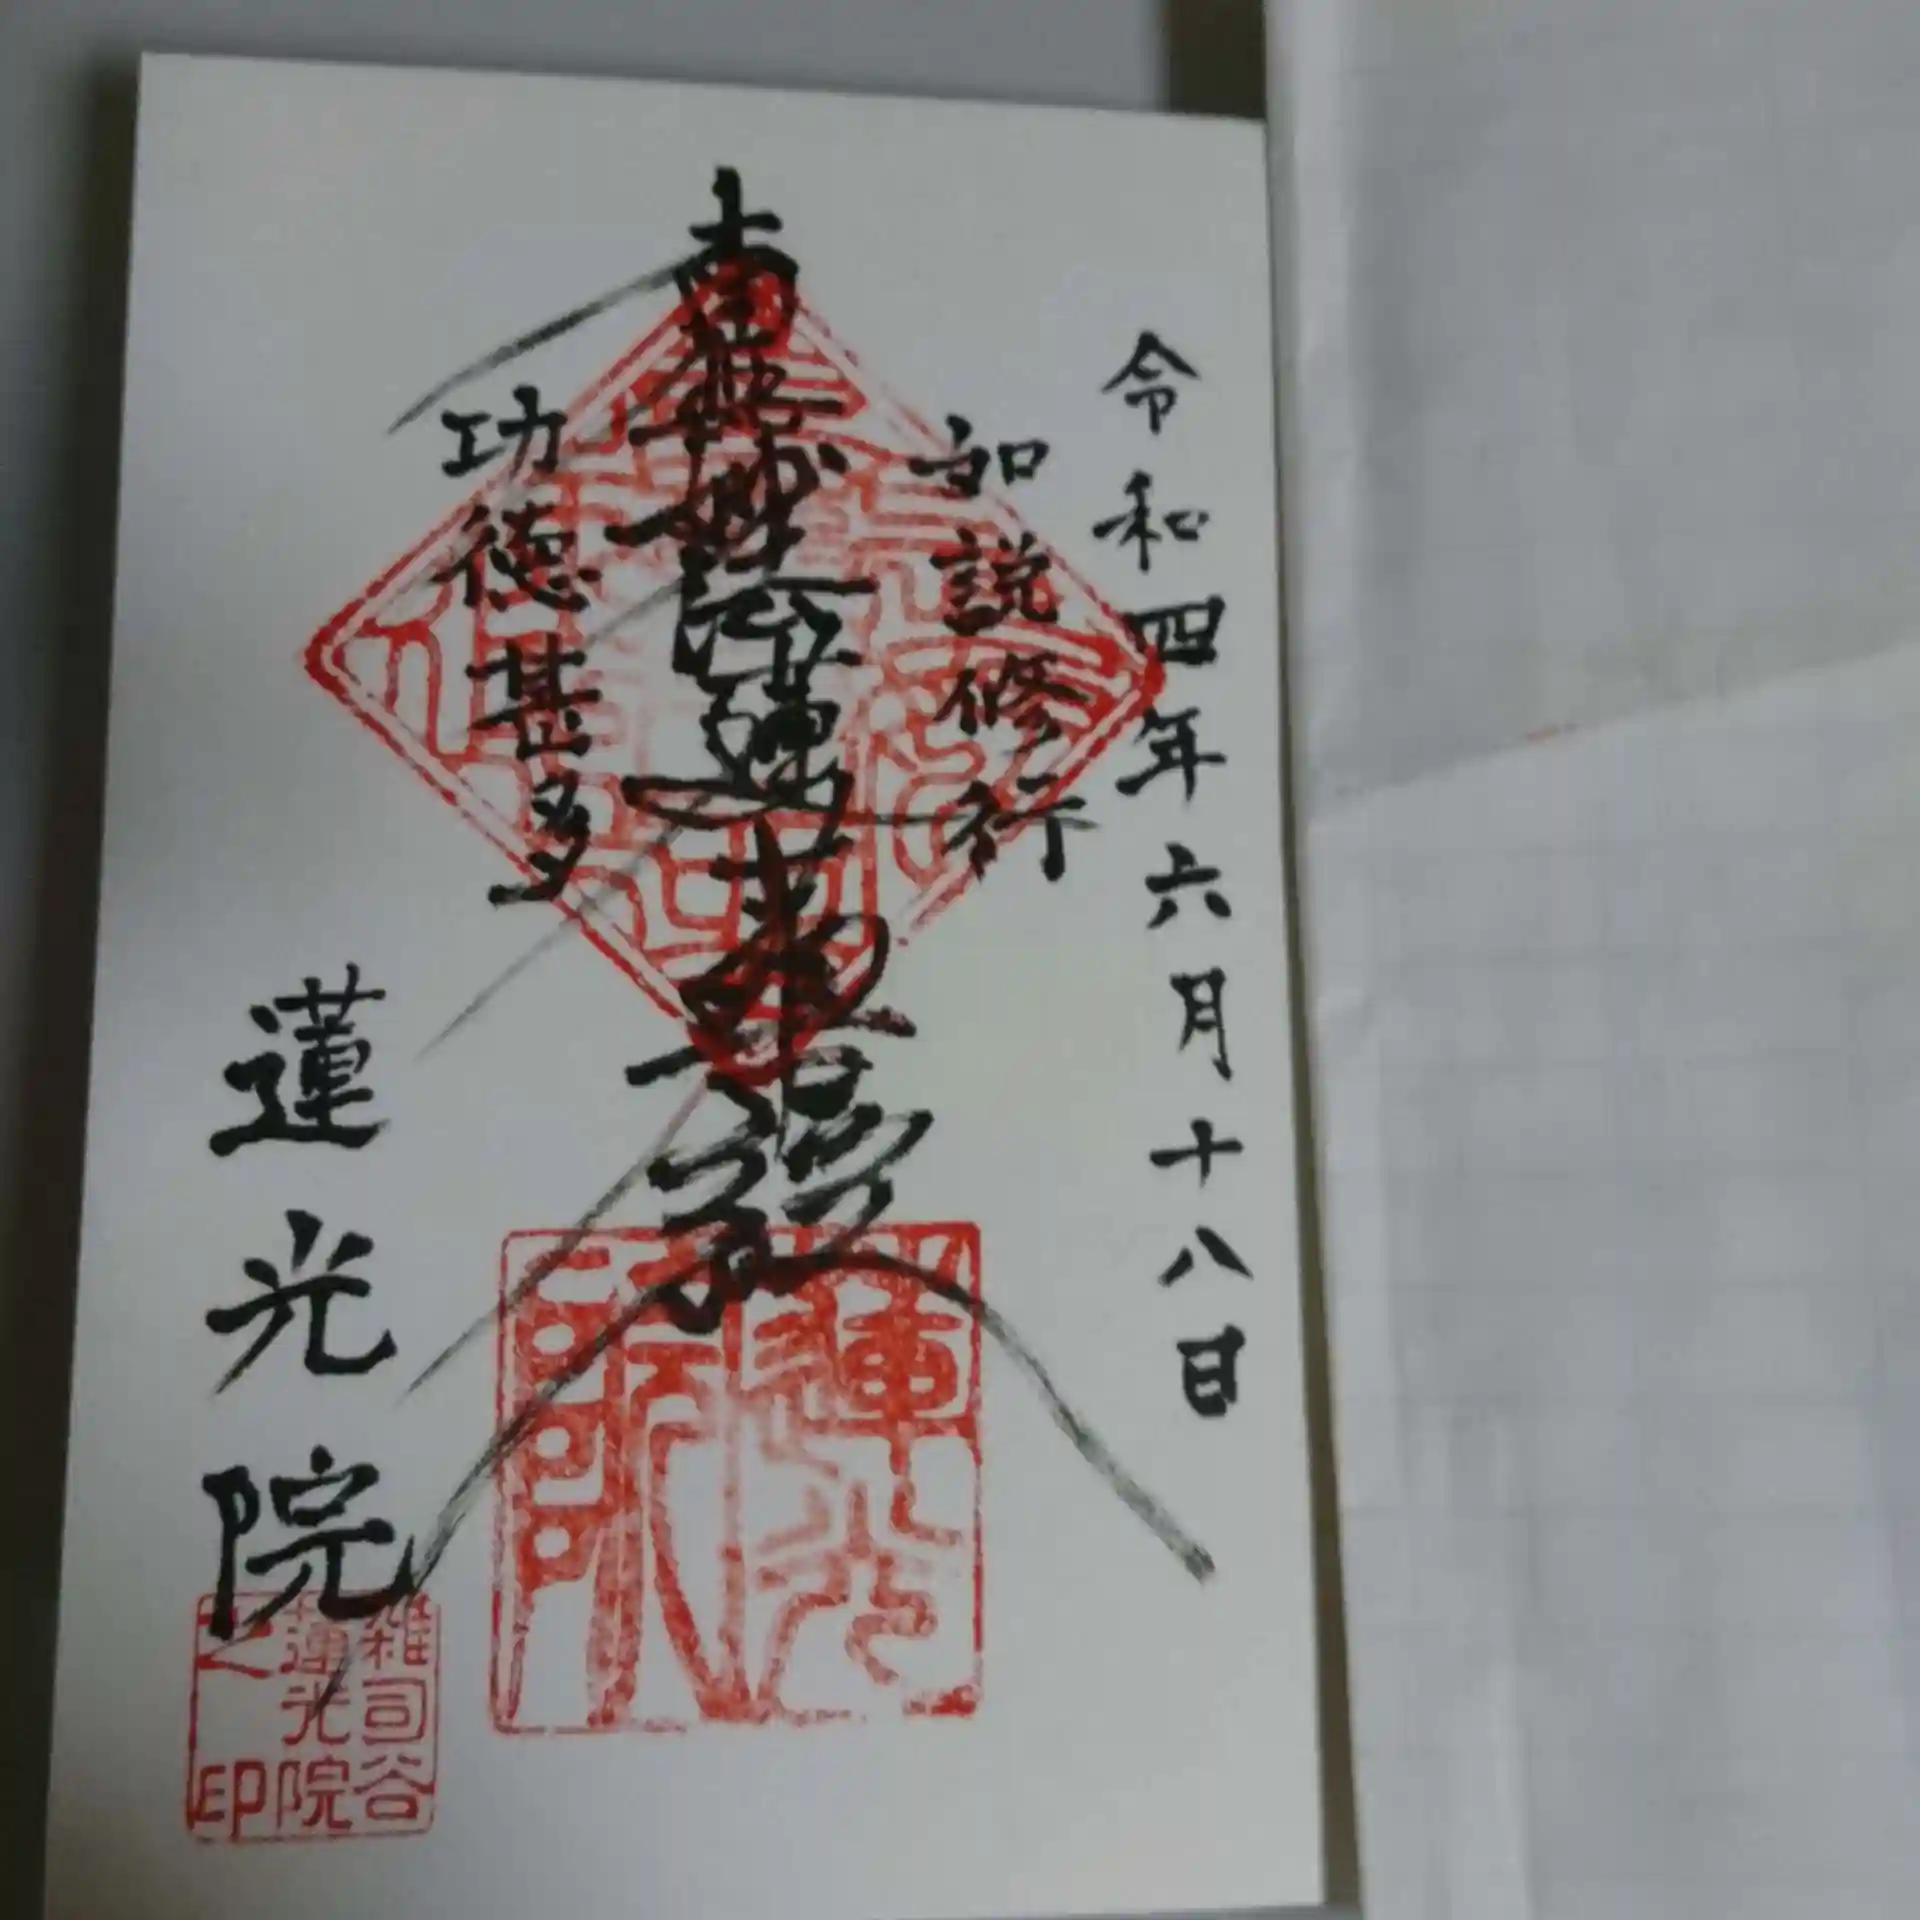 令和四年六月十八日
如説修行
南無妙法蓮華経
功徳甚多
蓮光院
蓮光
雑司谷
蓮光院
之印